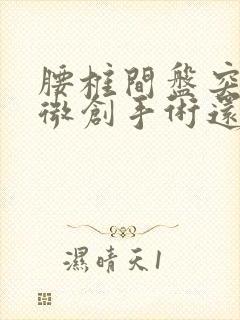 腰椎間盤突
微創手術還
濕晴天1